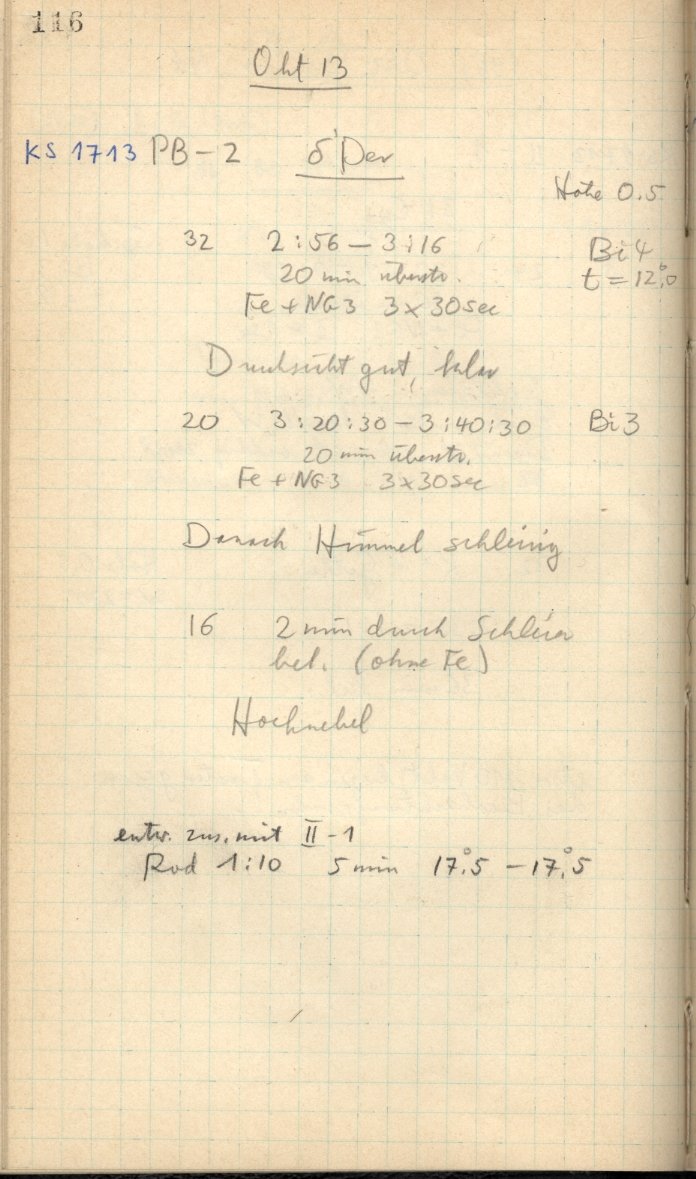 116
Okt 13
KS 1713 PB-2 δ Per
Höhe 0.5
32 2:56 – 3:16 Bi 4
20 min überstr. t = 12°,0
Fe + NG3 3x30sec
Durchsicht gut, klar
20 3:20:30 – 3:40:30 Bi 3
20 min überstr.
Fe + NG3 3x30sec
Danach Himmel schleirig
16 2 min durch Schleier
bel. (ohne Fe)
Hochnebel
entw. zus. mit II-1
Rod 1:10 5 min 17°,5 – 17°,5